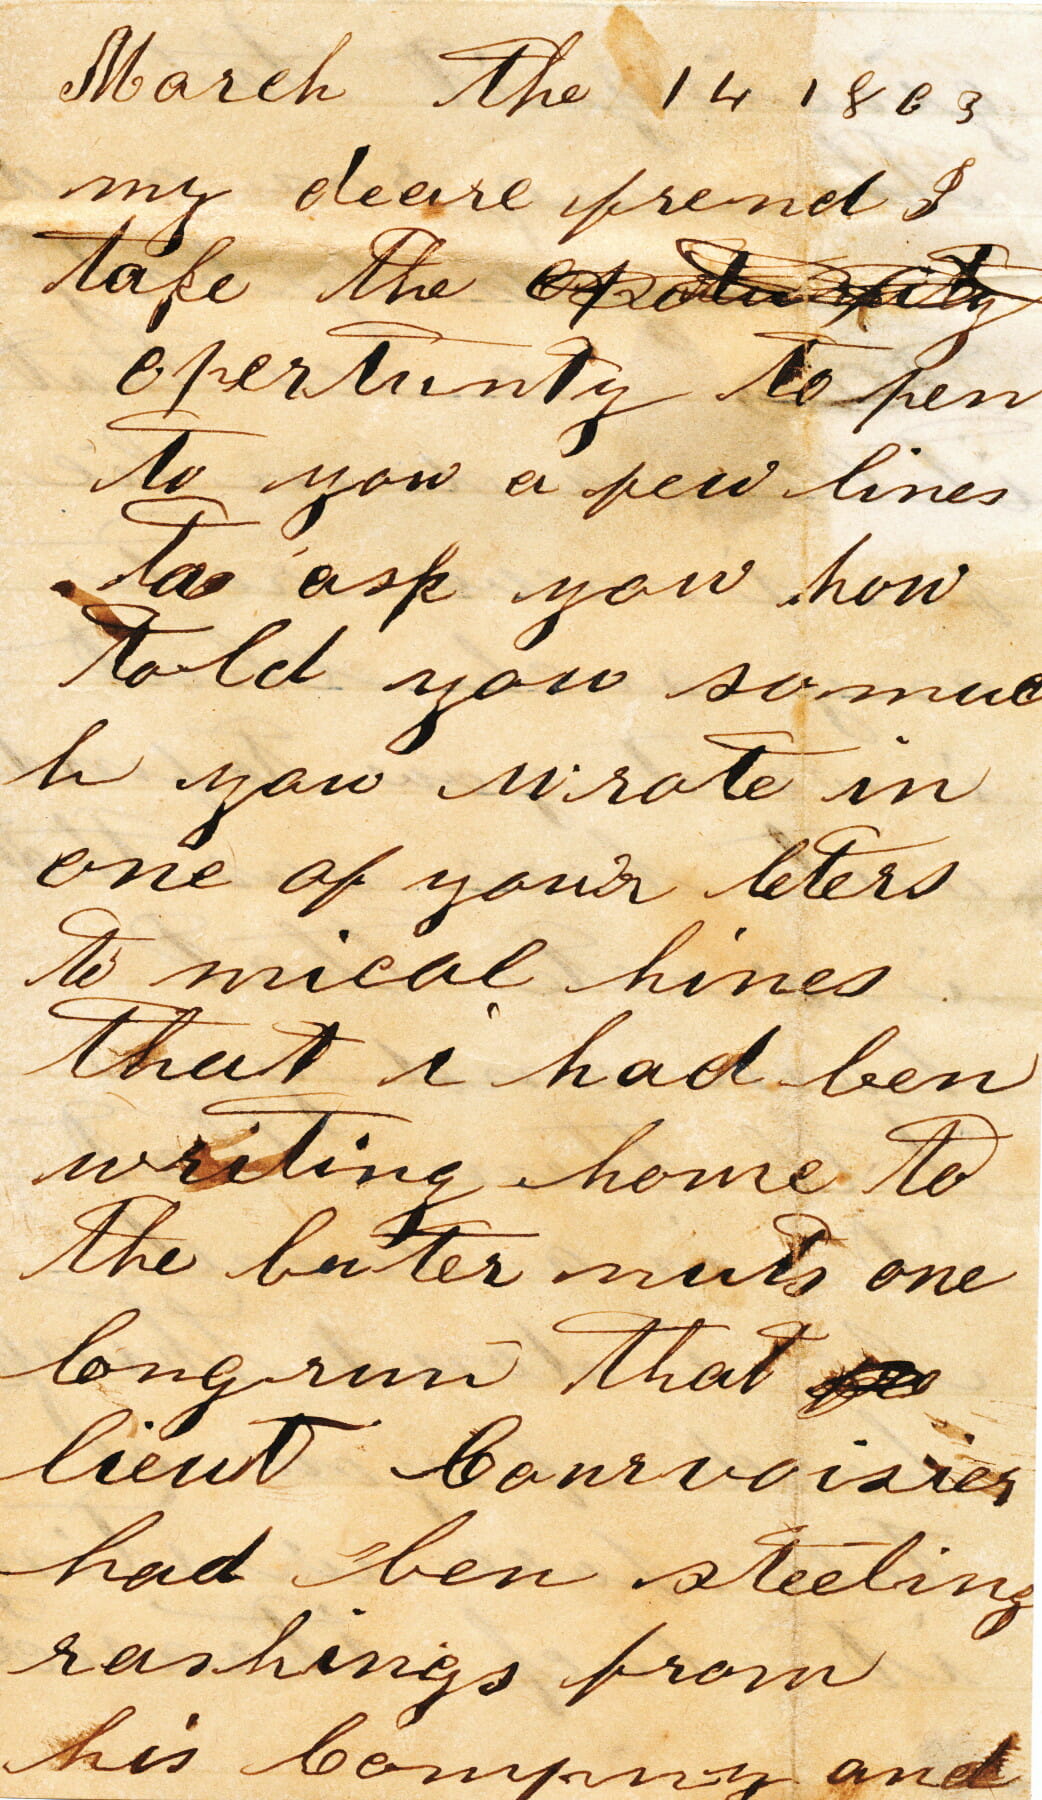 March the 14 1863
my deare frend I
take the opotunity
opertunty to pen
to yow a few lines
to ask yow how
told yow so muc
h yow wrote in
one of yowr leters
to mical hines
that i had ben
writing home to
the buter nuts one
long run that
lieut Courvoisier
had ben steeling
rashings from
his Compny and